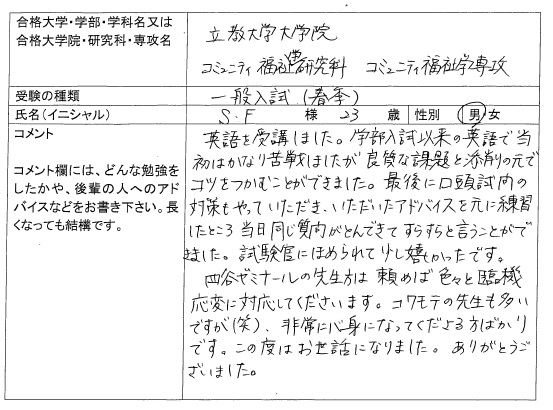 合格大学・学部・学科名又は
合格大学院・研究科・専攻名
立教大学大学院
コミュニティ福祉学研究科 コミュニティ福祉学専攻
受験の種類
一般入試(春季)
氏名(イニシャル)
S.F 様 23 歳 性別 男・女
コメント
コメント欄には、どんな勉強を
したかや、後輩の人へのアド
バイスなどをお書き下さい。長
くなっても結構です。
英語を受講しました。学部入試以来の英語で当
初はかなり苦戦しましたが良質な課題と添削の元で
コツをつかむことができました。最後に口頭試問の
対策もやっていただき、いただいたアドバイスを元に練習
したところ当日同じ質問がとんできてすらすらと言うことがで
きました。試験官にほめられて少し嬉しかったです。
四谷ゼミナールの先生方は頼めば色々と臨機
応変に対応してくださいます。コワモテの先生も多い
ですが(笑)、非常に心身になってくださる方ばかり
です。この度はお世話になりました。ありがとうご
ざいました。